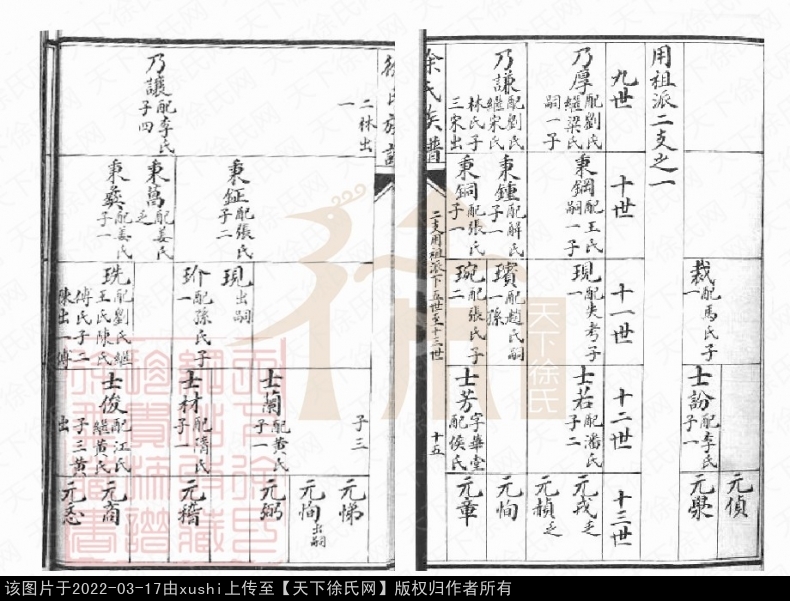 裁配馬氏子一
士訜配李氏子一
元偵
用祖派二支之一
九世
十世
十一世
十二世
十三世
乃厚配劉氏繼梁氏嗣一子
秉鋼配王氏嗣一子
現配失考子一
士若配潘氏子二
元戌乏
元楨乏
乃謙配劉氏繼宋氏林氏子三宋出
秉鍾配解氏子一
璸配趙氏嗣一孫
元恂
秉銅配張氏子一
琬配張氏子二
士芳字華堂配侯氏
元章
徐氏族譜
二支用祖派下五世至十三世
十五
二林出一
子三
元悌
元恂出嗣
秉鉦配張氏子二
現出嗣
士蘭配黃氏子一
元弼
乃讓配李氏子四
玠配孫氏子一
士材配隋氏子一
元稽
秉萬配姜氏乏
秉彜配姜氏子一
珗配劉氏繼王氏陳氏傅氏子二陳出一傅
士俊配江氏繼黃氏子三黃出
元商
天下徐氏网
该图片于2022-03-17由xushi上传至【天下徐氏网】版权归作者所有